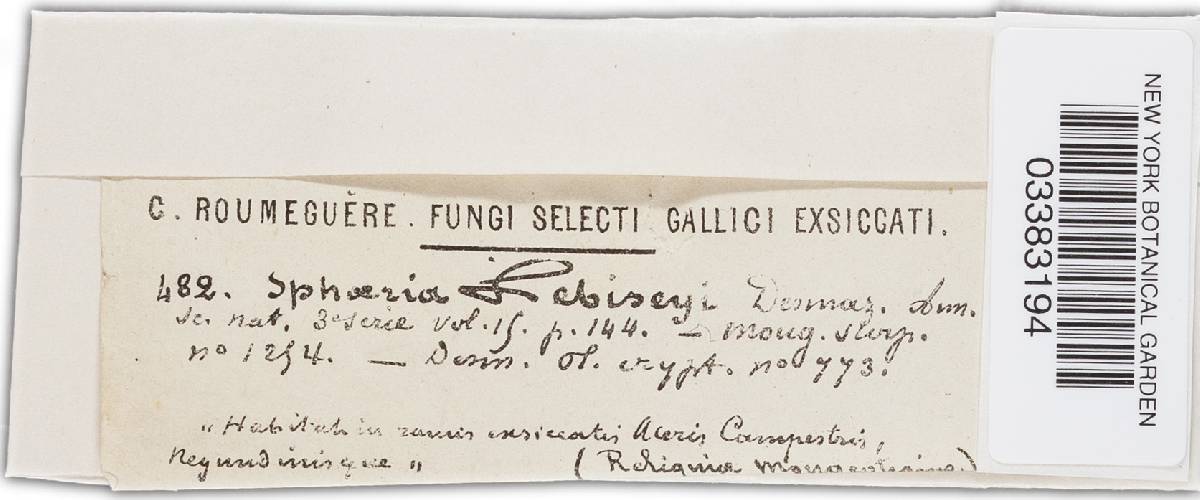 C. ROUMEGUÈRE. FUNGI SELECTI GALLICI EXSICCATI.
482. Sphæria Lebiseyi Desmaz. Ann.
sc. nat. 3e serie vol. 15. p. 144. — Moug. stirp.
no 1254. — Desm. Pl. crypt. no 773.
„ Habitat in ramis exsiccatis Aceris Campestris,
Negundinisque „ (Reliquiæ Mougeotianæ.)
NEW YORK BOTANICAL GARDEN
03383194